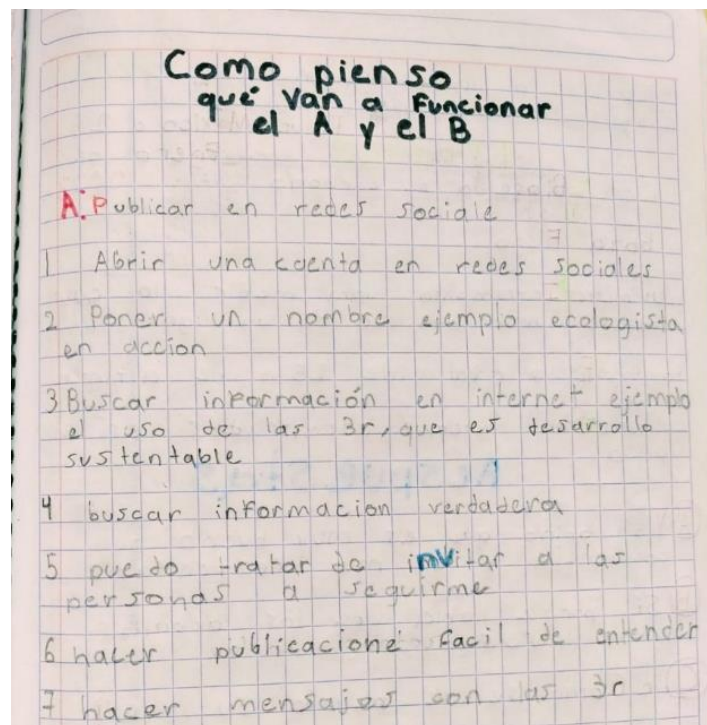 Como pienso
que van a Funcionar
el A y el B
A. Publicar en redes sociale
1 Abrir una cuenta en redes sociales
2 Poner un nombre ejemplo ecologista
en accion
3 Buscar información en internet ejemplo
el uso de las 3r, que es desarrollo
sustentable
4 buscar informacion verdadera
5 puedo tratar de invitar a las
personas a seguirme
6 hacer publicacione facil de entender
7 hacer mensajes con las 3r